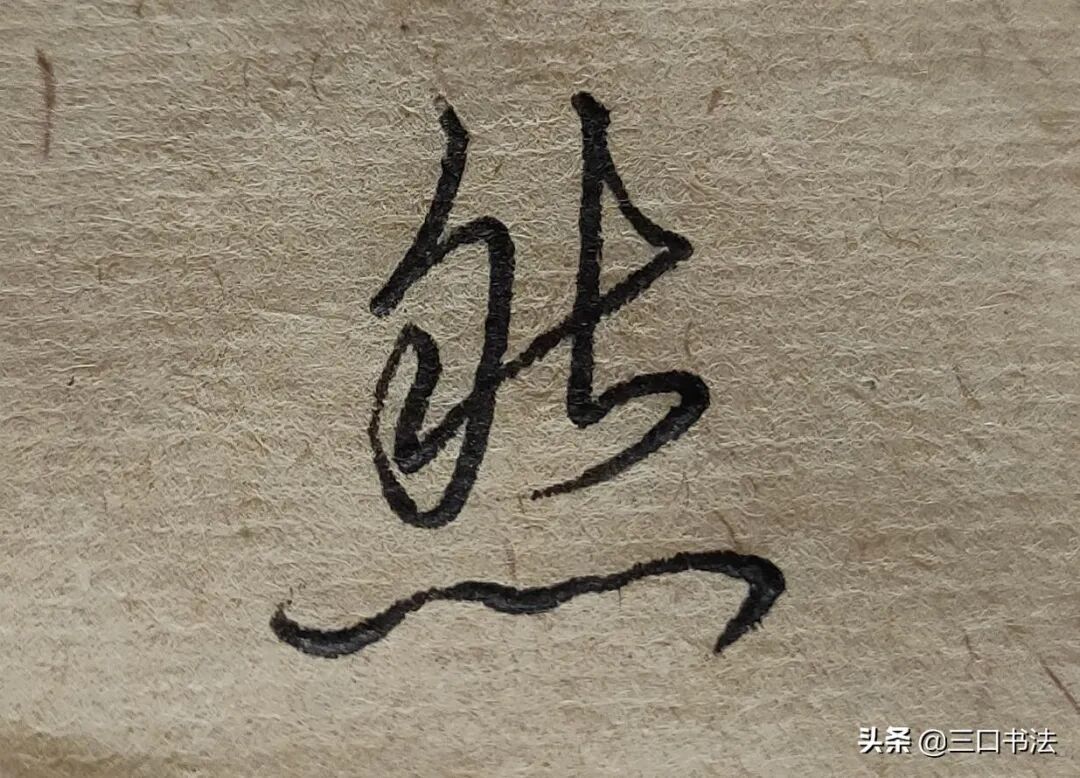 熊
头条 @三口书法